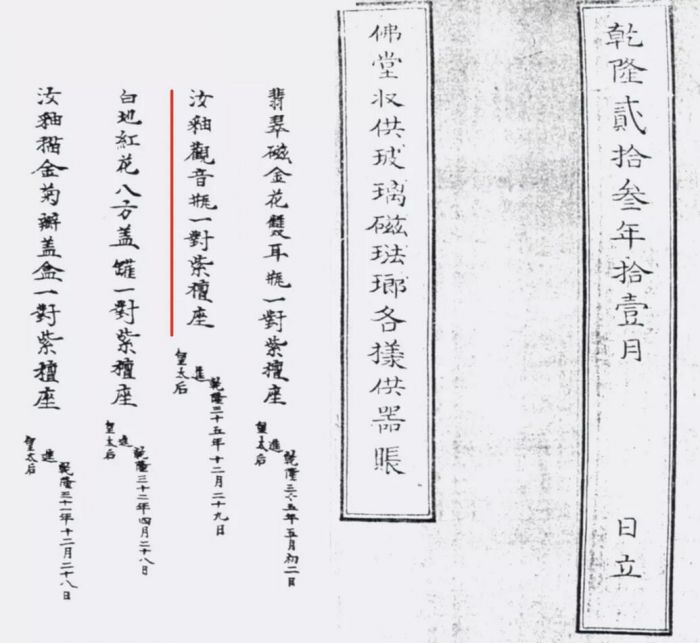 乾隆貳拾叁年拾壹月 日立
佛堂收供玻璃磁琺瑯各樣供器賬
翡翠磁金花雙耳瓶一對紫檀座
乾隆三十五年五月初二日
進
皇太后
汝釉觀音瓶一對紫檀座
乾隆三十五年十二月二十九日
進
皇太后
白地紅花八方盖罐一對紫檀座
乾隆三十二年四月二十八日
進
皇太后
汝釉描金菊瓣盖盒一對紫檀座
乾隆三十一年十二月二十八日
進
皇太后